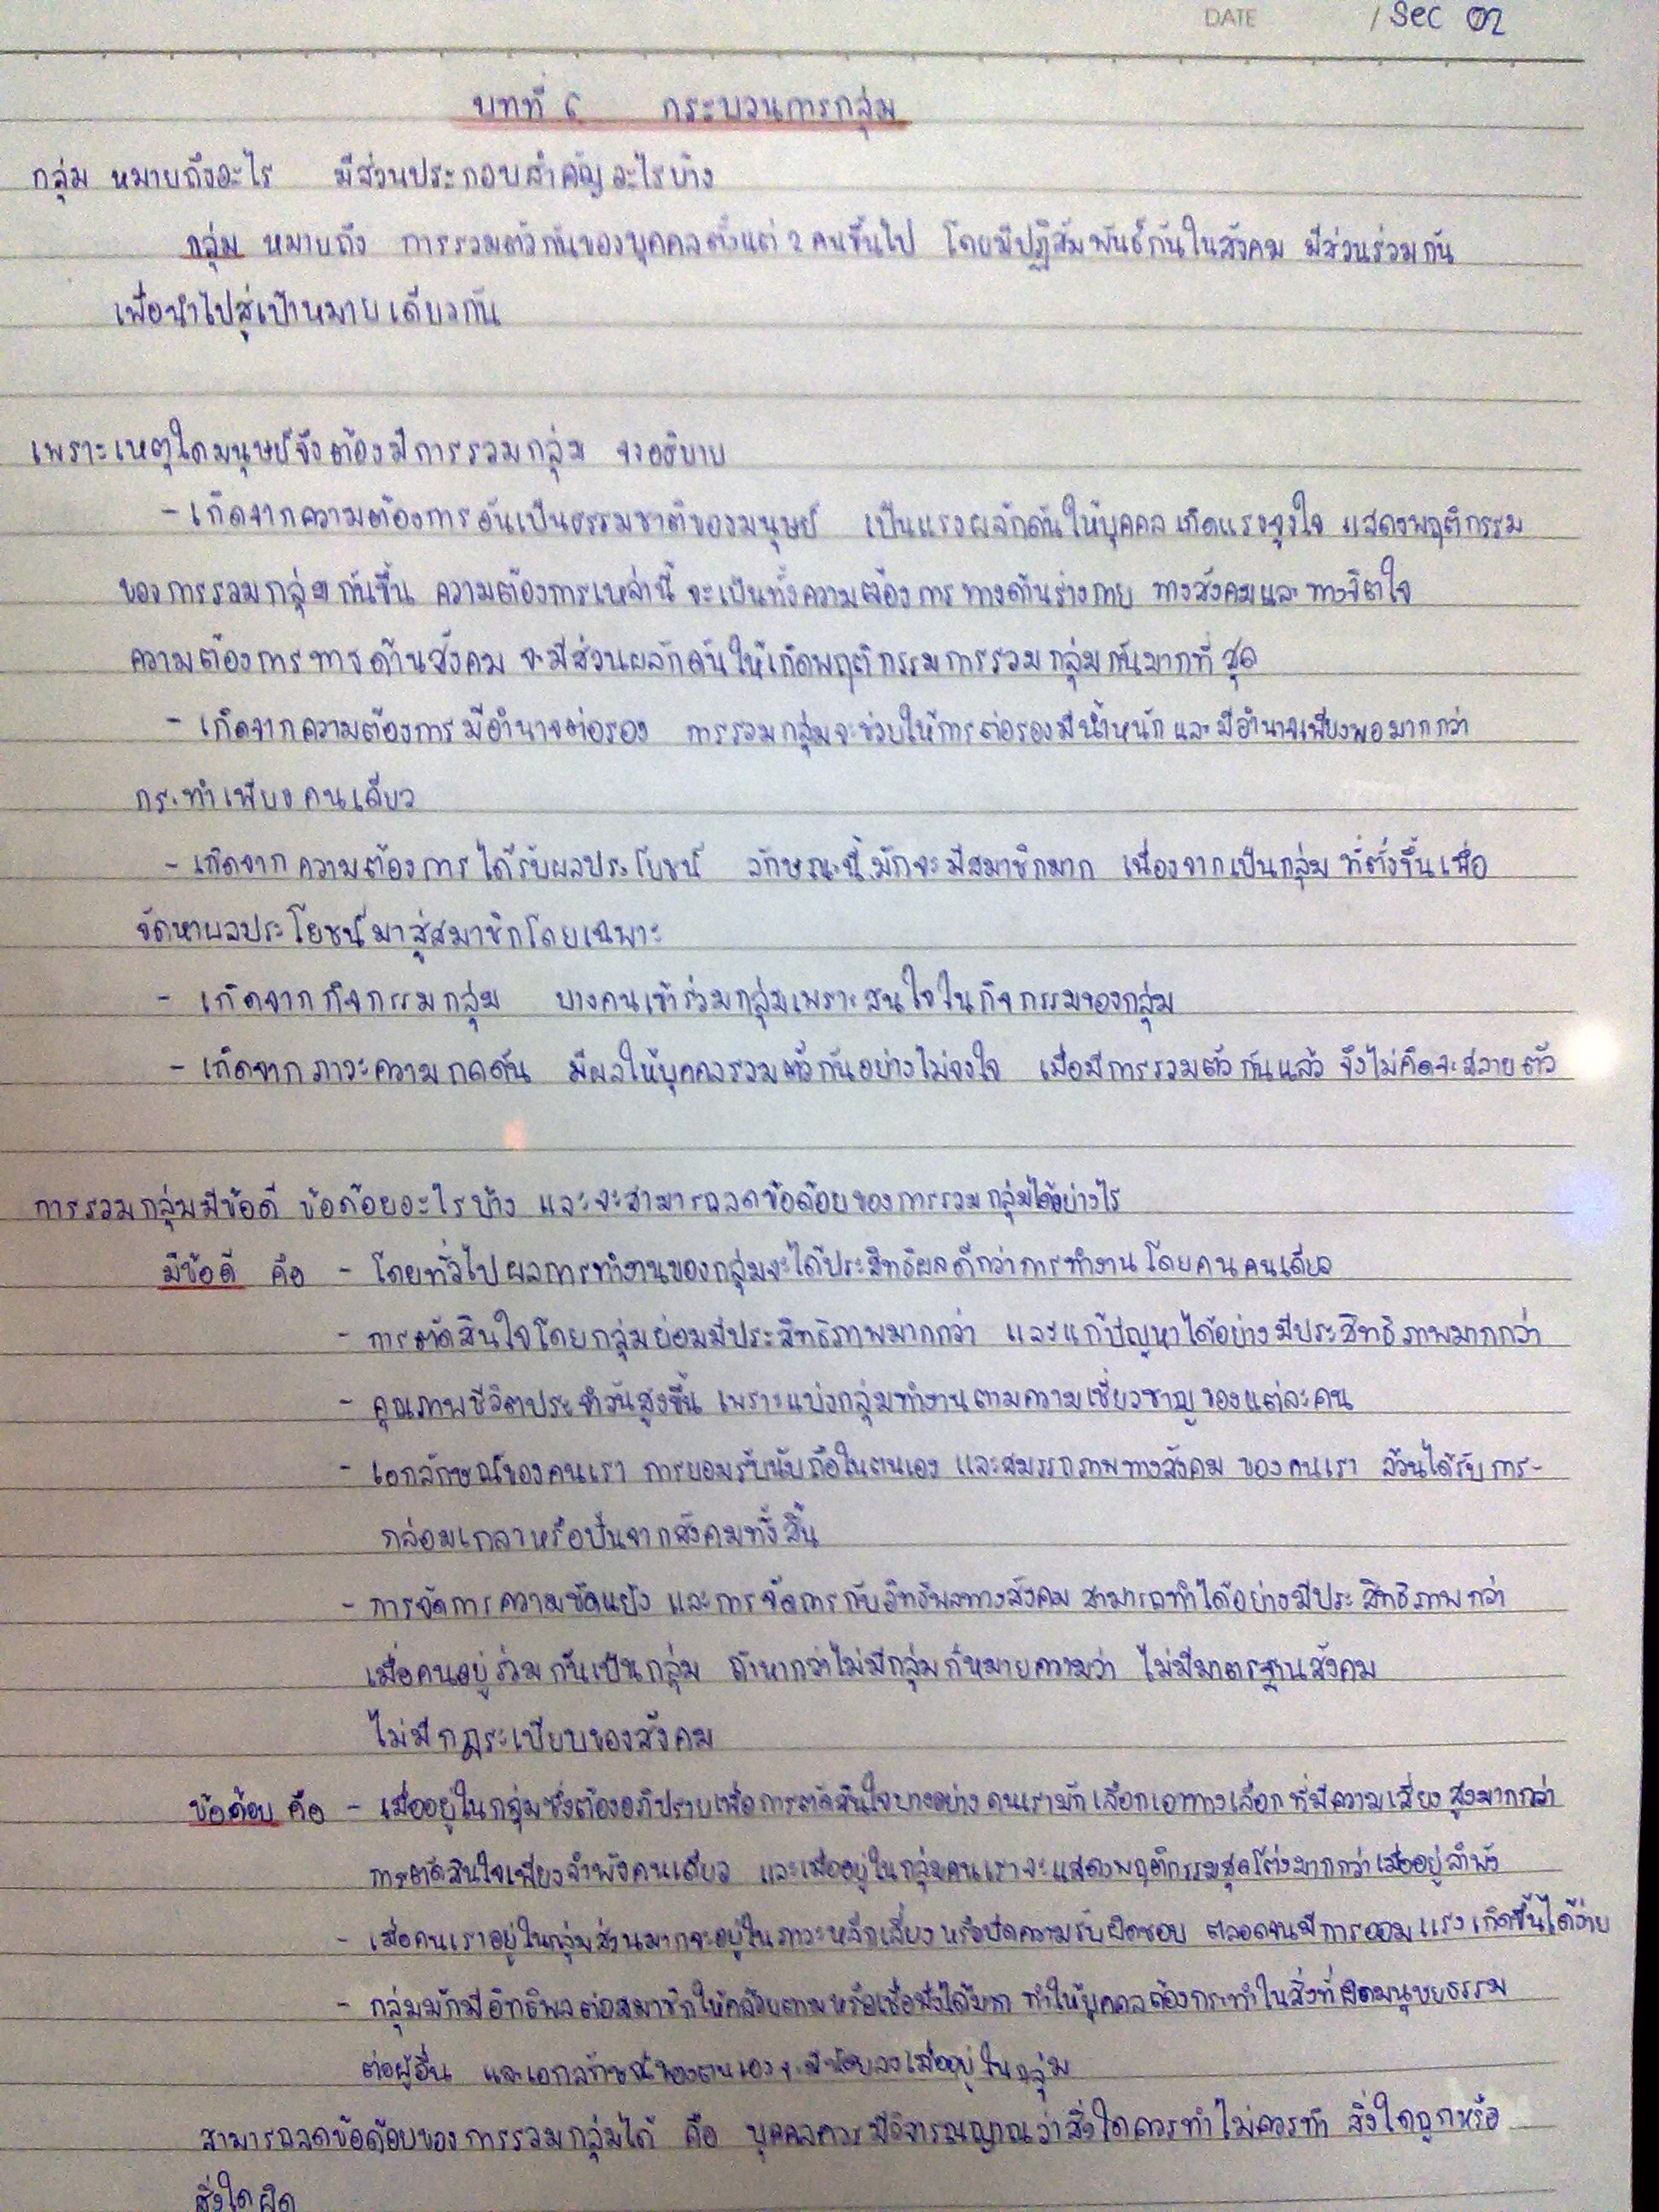 DATE / Sec 02
บทที่ 6 กระบวนการกลุ่ม
กลุ่ม หมายถึงอะไร มีส่วนประกอบสำคัญอะไรบ้าง
กลุ่ม หมายถึง การรวมตัวกันของบุคคลตั้งแต่ 2 คนขึ้นไป โดยมีปฏิสัมพันธ์กันในสังคม มีส่วนร่วมกัน
เพื่อนำไปสู่เป้าหมายเดียวกัน
เพราะเหตุใดมนุษย์จึงต้องมีการรวมกลุ่ม จงอธิบาย
- เกิดจากความต้องการอันเป็นธรรมชาติของมนุษย์ เป็นแรงผลักดันให้บุคคลเกิดแรงจูงใจ แสดงพฤติกรรม
ของการรวมกลุ่มกันขึ้น ความต้องการเหล่านี้ จะเป็นทั้งความต้องการทางด้านร่างกาย ทางสังคมและทางจิตใจ
ความต้องการทางด้านสังคม จะมีส่วนผลักดันให้เกิดพฤติกรรมการรวมกลุ่มกันมากที่สุด
- เกิดจากความต้องการมีอำนาจต่อรอง การรวมกลุ่มจะช่วยให้การต่อรองมีน้ำหนักและมีอำนาจเพียงพอมากกว่า
กระทำเพียงคนเดียว
- เกิดจากความต้องการได้รับผลประโยชน์ ลักษณะนี้มักจะมีสมาชิกมาก เนื่องจากเป็นกลุ่มที่ตั้งขึ้นเพื่อ
จัดหาผลประโยชน์มาสู่สมาชิกโดยเฉพาะ
- เกิดจากกิจกรรมกลุ่ม บางคนเข้าร่วมกลุ่มเพราะสนใจในกิจกรรมของกลุ่ม
- เกิดจากภาวะความกดดัน มีผลให้บุคคลรวมตัวกันอย่างไม่จงใจ เมื่อมีการรวมตัวกันแล้ว จึงไม่คิดจะสลายตัว
การรวมกลุ่มมีข้อดี ข้อด้อยอะไรบ้าง และจะสามารถลดข้อด้อยของการรวมกลุ่มได้อย่างไร
มีข้อดี คือ - โดยทั่วไปผลการทำงานของกลุ่มจะได้ประสิทธิผลดีกว่าการทำงานโดยคนคนเดียว
- การตัดสินใจโดยกลุ่มย่อมมีประสิทธิภาพมากกว่า และแก้ปัญหาได้อย่างมีประสิทธิภาพมากกว่า
- คุณภาพชีวิตประจำวันสูงขึ้น เพราะแบ่งกลุ่มทำงานตามความเชี่ยวชาญของแต่ละคน
- เอกลักษณ์ของคนเรา การยอมรับนับถือในตนเอง และสมรรถภาพทางสังคม ของคนเรา ล้วนได้รับการ-
กล่อมเกลาหรือปั้นจากสังคมทั้งสิ้น
- การจัดการความขัดแย้ง และการจัดการกับอิทธิพลทางสังคม สามารถทำได้อย่างมีประสิทธิภาพกว่า
เมื่อคนอยู่ร่วมกันเป็นกลุ่ม ถ้าหากว่าไม่มีกลุ่มก็หมายความว่า ไม่มีมาตรฐานสังคม
ไม่มีกฎระเบียบของสังคม
ข้อด้อย คือ - เมื่ออยู่ในกลุ่มซึ่งต้องอภิปรายเพื่อการตัดสินใจบางอย่าง คนเรามักเลือกเอาทางเลือกที่มีความเสี่ยงสูงมากกว่า
การตัดสินใจเพียงลำพังคนเดียว และเมื่ออยู่ในกลุ่มคนเราจะแสดงพฤติกรรมสุดโต่งมากกว่าเมื่ออยู่ลำพัง
- เมื่อคนเราอยู่ในกลุ่มส่วนมากจะอยู่ในภาวะหลีกเลี่ยงหรือปัดความรับผิดชอบ ตลอดจนมีการออมแรงเกิดขึ้นได้ง่าย
- กลุ่มมักมีอิทธิพลต่อสมาชิกให้คล้อยตามหรือเชื่อฟังได้มาก ทำให้บุคคลต้องกระทำในสิ่งที่ผิดมนุษยธรรม
ต่อผู้อื่น และเอกลักษณ์ของตนเองจะมีน้อยลงเมื่ออยู่ในกลุ่ม
สามารถลดข้อด้อยของการรวมกลุ่มได้ คือ บุคคลควรมีวิจารณญาณว่าสิ่งใดควรทำไม่ควรทำ สิ่งใดถูกหรือ
สิ่งใดผิด